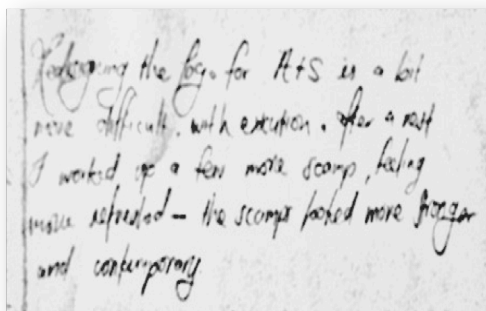 Redesigning the logo for A+S is a bit
more difficult. with execution. after a rest
I worked up a few more scamp, feeling
more refreshed – the scamps looked more
and contemporary.